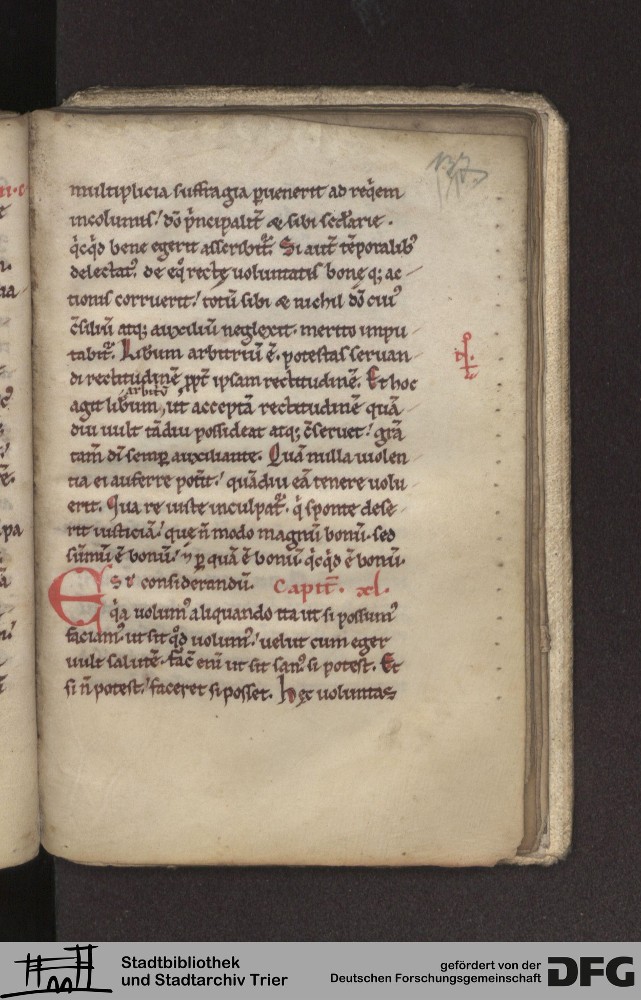 137
multiplicia suffragia ꝑuenerit ad req̇em
incolumis! dō p̄ncipalit̄ & sibi sec̄darie.
q̇cq̇d bene egerit asscribit᷑. Si aut̄ tēporalib᷒
delectat᷒, de eq̄ rectę uoluntatis bonę q; ac
tionis corruerit! totū sibi & nichil dō cui᷒
c̄siliū atq; auxiliū neglexit. merito impu
tabit᷑. Libum arbitriū ē. potestas seruan
di rectitudinē ꝓpt̄ ipsam rectitudinē. Et hoc
agit libum arbitriū, ut acceptā rectitudinē quā
diu uult tādiu possideat atq; c̄seruet! grā
tam̄ dī semꝑ auxiliante. Quā nulla uiolen
tia ei auferre pot̄it! quādiu eā tenere uolu
erit. Qua re iuste inculpat᷑. q̇ sponte dese
rit iusticiā! que n̄ modo magnū bonū. sed
sūmū ē bonū! ⁊ ꝑ quā ē bonū. q̇cq̇d ē bonū.
Est considerandū. Capit̄. xl.
q̇a uolum᷒ aliquando ita ut si possum᷒
faciam᷒ ut sit qd̄ uolum᷒! uelut cum eger
uult salutē. fac̄ eni ut sit san᷒. si potest. Et
si n̄ potest! faceret si posset. hęc uoluntas
Stadtbibliothek
und Stadtarchiv Trier
gefördert von der
Deutschen Forschungsgemeinschaft
DFG